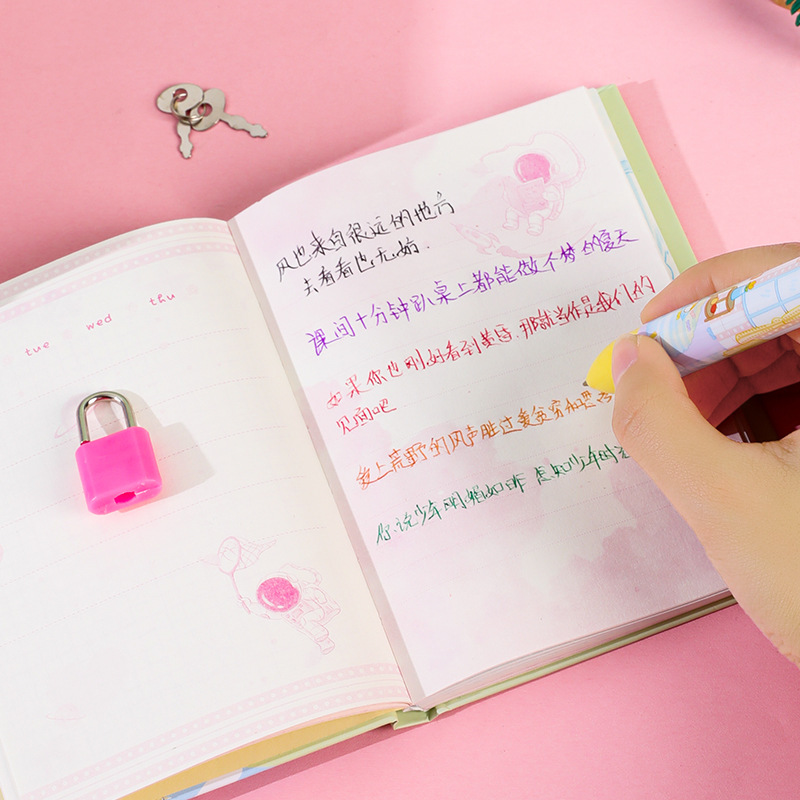 tue wed thu
风也来自很远的地方
去看看也无妨.
课间十分钟趴桌上都能做个梦的夏天
如果你也刚好看到黄昏,那就当作是我们的
见面吧
爱上荒野的风声胜过
你说少年明媚如昨